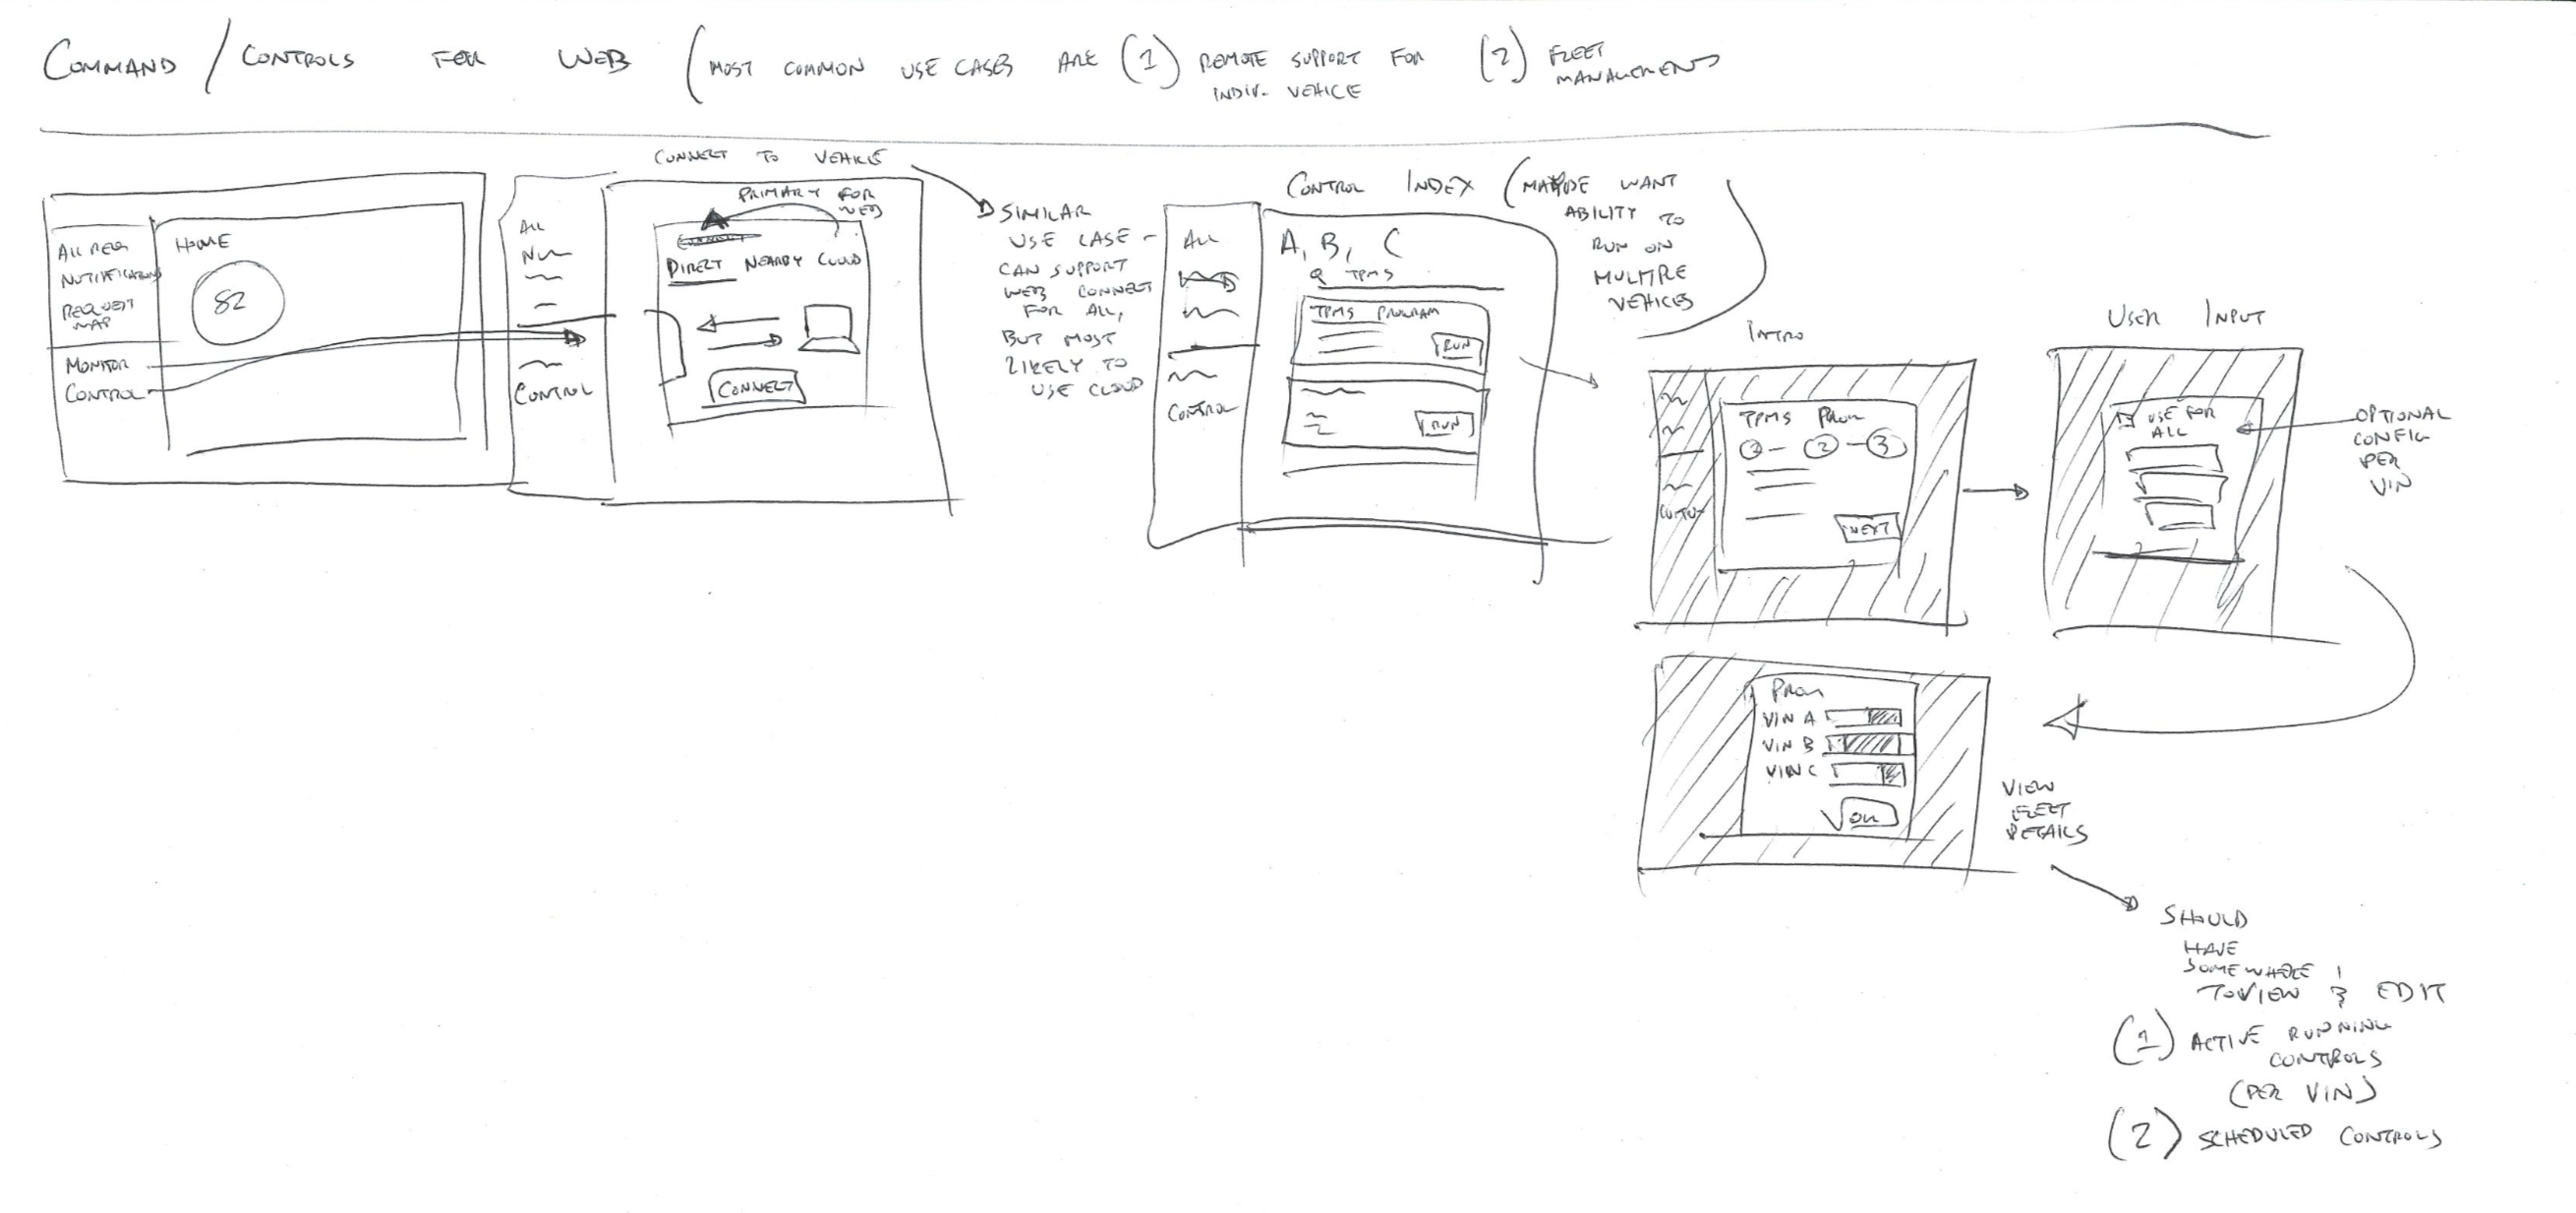 COMMAND / CONTROLS FOR WEB (MOST COMMON USE CASES ARE (1) REMOTE SUPPORT FOR INDIV. VEHICLE (2) FLEET MANAGEMENT
ALL REQ
NOTIFICATIONS
REQUEST
MAP
MONITOR
CONTROL
HOME
82
CONNECT TO VEHICLE
ALL
CONTROL
PRIMARY FOR
WEB
DIRECT NEARBY CLOUD
CONNECT
SIMILAR
USE CASE -
CAN SUPPORT
WEB CONNECT
FOR ALL,
BUT MOST
LIKELY TO
USE CLOUD
CONTROL INDEX (MAYBE WANT
ABILITY TO
RUN ON
MULTIPLE
VEHICLES
ALL
CONTROL
A, B, C
TPMS
TPMS PROGRAM
RUN
RUN
INTRO
TPMS PROG
1 - 2 - 3
NEXT
USER INPUT
USE FOR
ALL
OPTIONAL
CONFIG
PER
VIN
PROG
VIN A
VIN B
VIN C
OK
VIEW
FLEET
DETAILS
SHOULD
HAVE
SOMEWHERE
TO VIEW & EDIT
(1) ACTIVE RUNNING
CONTROLS
(PER VIN)
(2) SCHEDULED CONTROLS